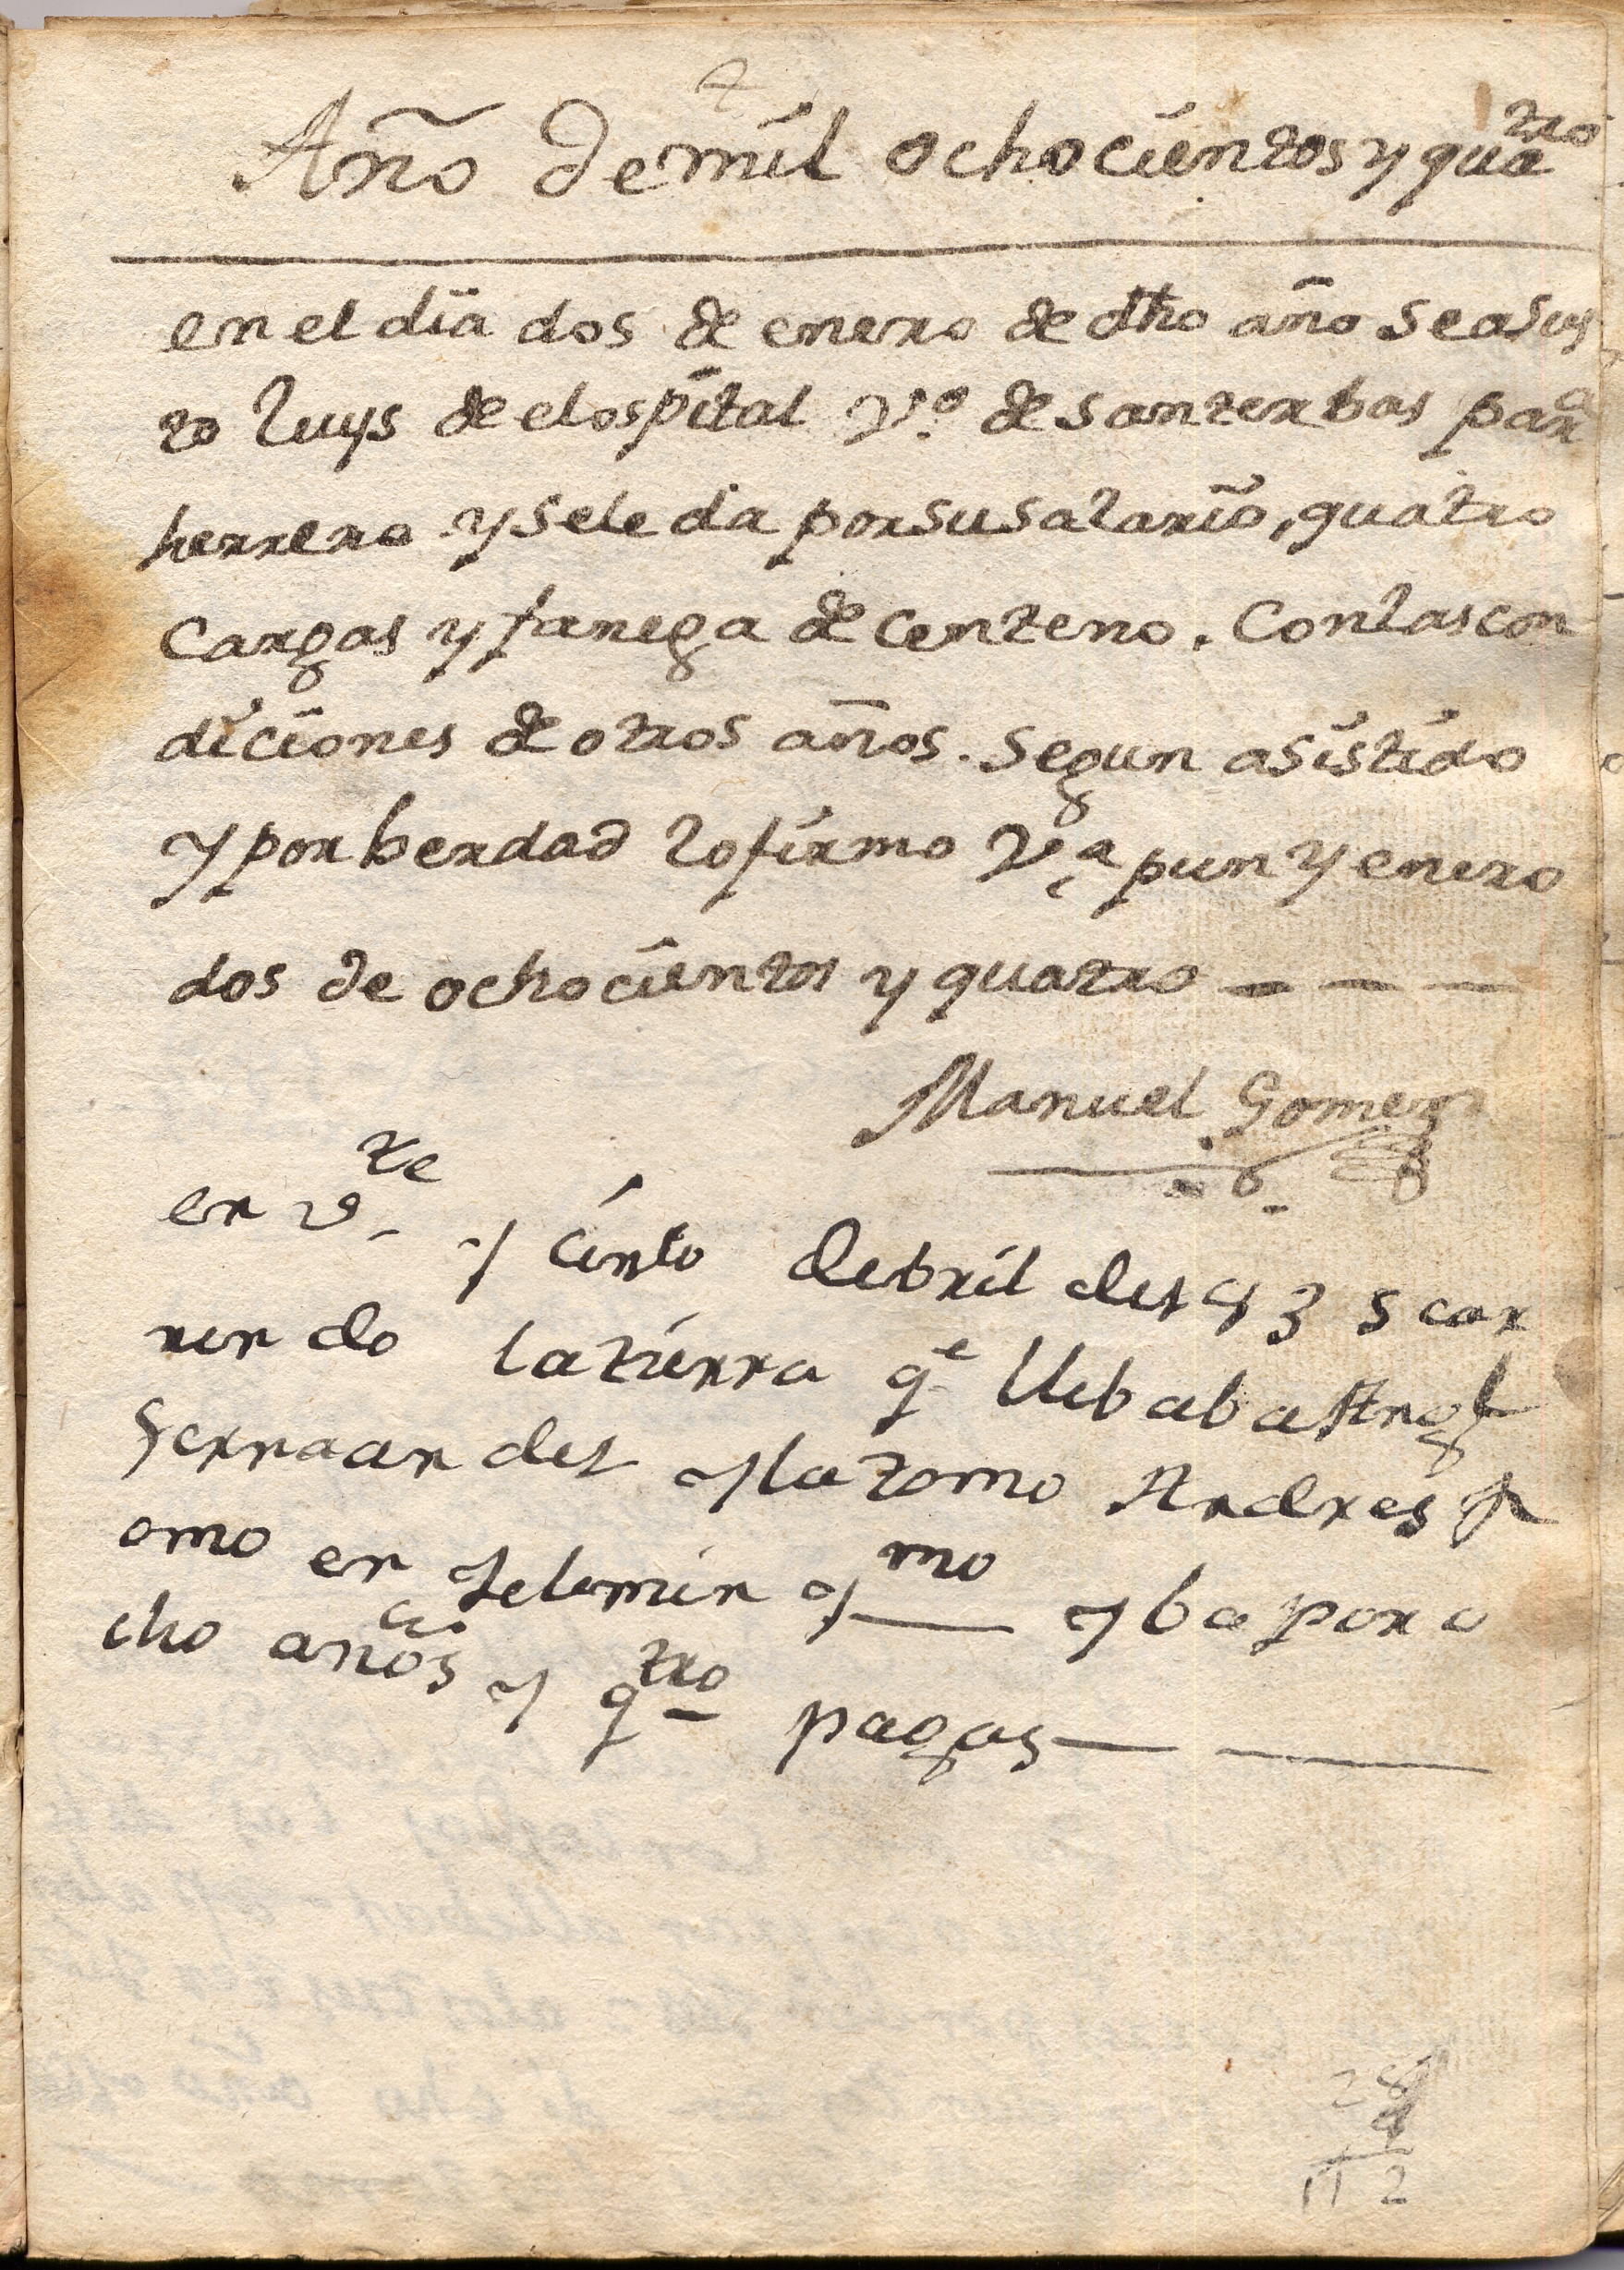 Año de mil ochocientos y quatro
en el dia dos de enero de dho año se a Jus
to luys de el ospital Vº de santerbas para
herrero y se le da por su salario, quatro
Cargas y fanega de Centeno. Con las con
diciones de otros años. Segun asistido
y por berdad lo firmo Vª pun y enero
dos de ochocientos y quatro
Manuel Gomez
en vte y cinto debril del 93 s car
ren do la tierra qe llebaba Angl
Fernaandes y la tomo Andres
omo en y ba por o
cho años y qtro pagas
28
4
112